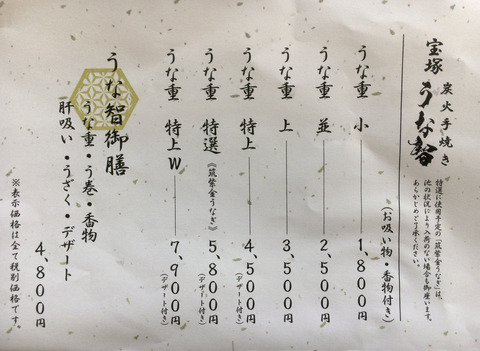 炭火手焼き
宝塚 うな智
特選に使用予定の「筑紫金うなぎ」は、
池の状況により入荷のない場合も御座います。
あらかじめご了承ください。
(お吸い物・香物付き)
うな重 小 1,800円
うな重 並 2,500円
うな重 上 3,500円
うな重 特上 4,500円
(デザート付き)
うな重 特選 《筑紫金うなぎ》 5,800円
(デザート付き)
うな重 特上W 7,900円
(デザート付き)
うな智御膳
うな重・う巻・香物
肝吸い・うざく・デザート
4,800円
※表示価格は全て税別価格です。